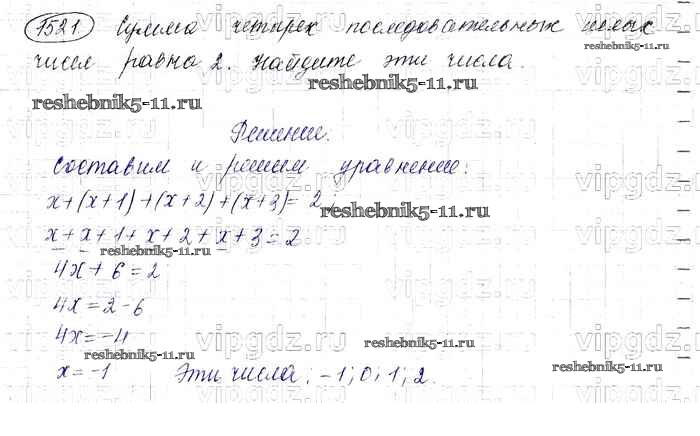 1521. Сумма четырех последовательных целых
чисел равна 2. Найдите эти числа.
reshebnik5-11.ru
reshebnik5-11.ru
vipgdz.ru
Решение.
Составим и решим уравнение:
x+(x+1)+(x+2)+(x+3)=2
reshebnik5-11.ru
x+x+1+x+2+x+3=2
reshebnik5-11.ru
4x+6=2
4x=2-6
4x=-4
reshebnik5-11.ru
reshebnik5-11.ru
reshebnik5-11.ru
x=-1 Эти числа: -1; 0; 1; 2.